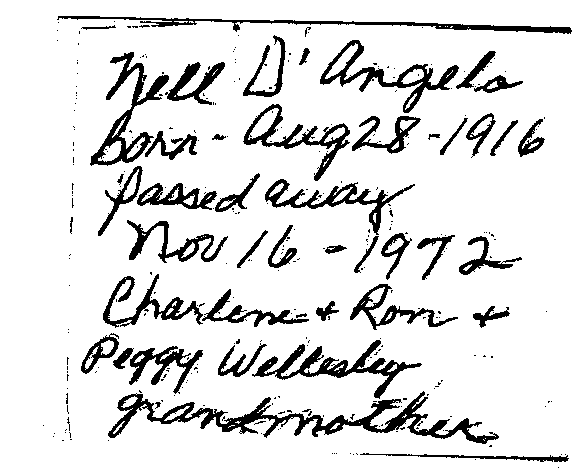 Nell D'Angelo
Born - Aug 28 - 1916
passed away
Nov 16 - 1972
Charlene + Ron +
Peggy Wellesley
grandmother